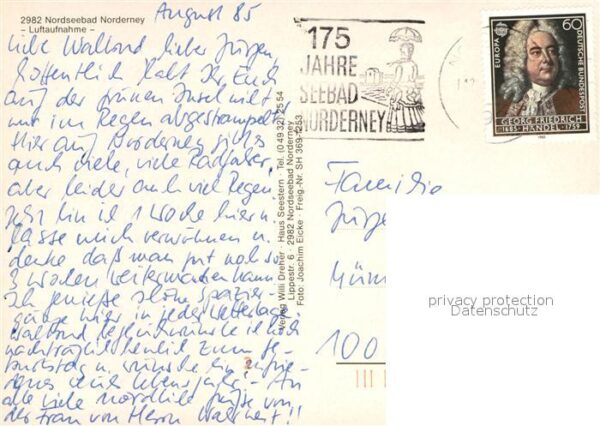 2982 Nordseebad Norderney
– Luftaufnahme –
August 85
lieber Jürgen,
hoffentlich habt Ihr Euch
auf der grünen Insel nicht
nur im Regen abgestrampelt
Hier auf Norderney gibt's
auch viele, viele Radfahrer,
aber leider auch viel Regen.
Jetzt bin ich 1 Woche hier u.
lasse mich verwöhnen u.
denke daß man gut noch so
3 Wochen weitermachen kann
Ich genieße schöne Spazier-
gänge hier in jeder Wetterlage.
ich Dir
nachträglich zum Ge-
burtstag u. wünsche ein
neues Lebensjahr! - An
alle viele Grüße von
der Frau von Herrn
Verlag Willi Dreher · Haus Seestern · Tel. (0 49 32) 25 54
Lippestr. 6 · 2982 Nordseebad Norderney
Foto: Joachim Eicke · Freig.-Nr. SH 369-1253
175
JAHRE
SEEBAD
NORDERNEY
EUROPA
60
DEUTSCHE BUNDESPOST
GEORG FRIEDRICH
1685 HÄNDEL 1759
Familie
100
privacy protection
Datenschutz